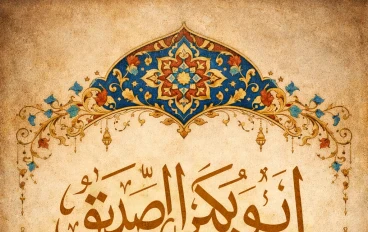 أبو بكر الصّديق